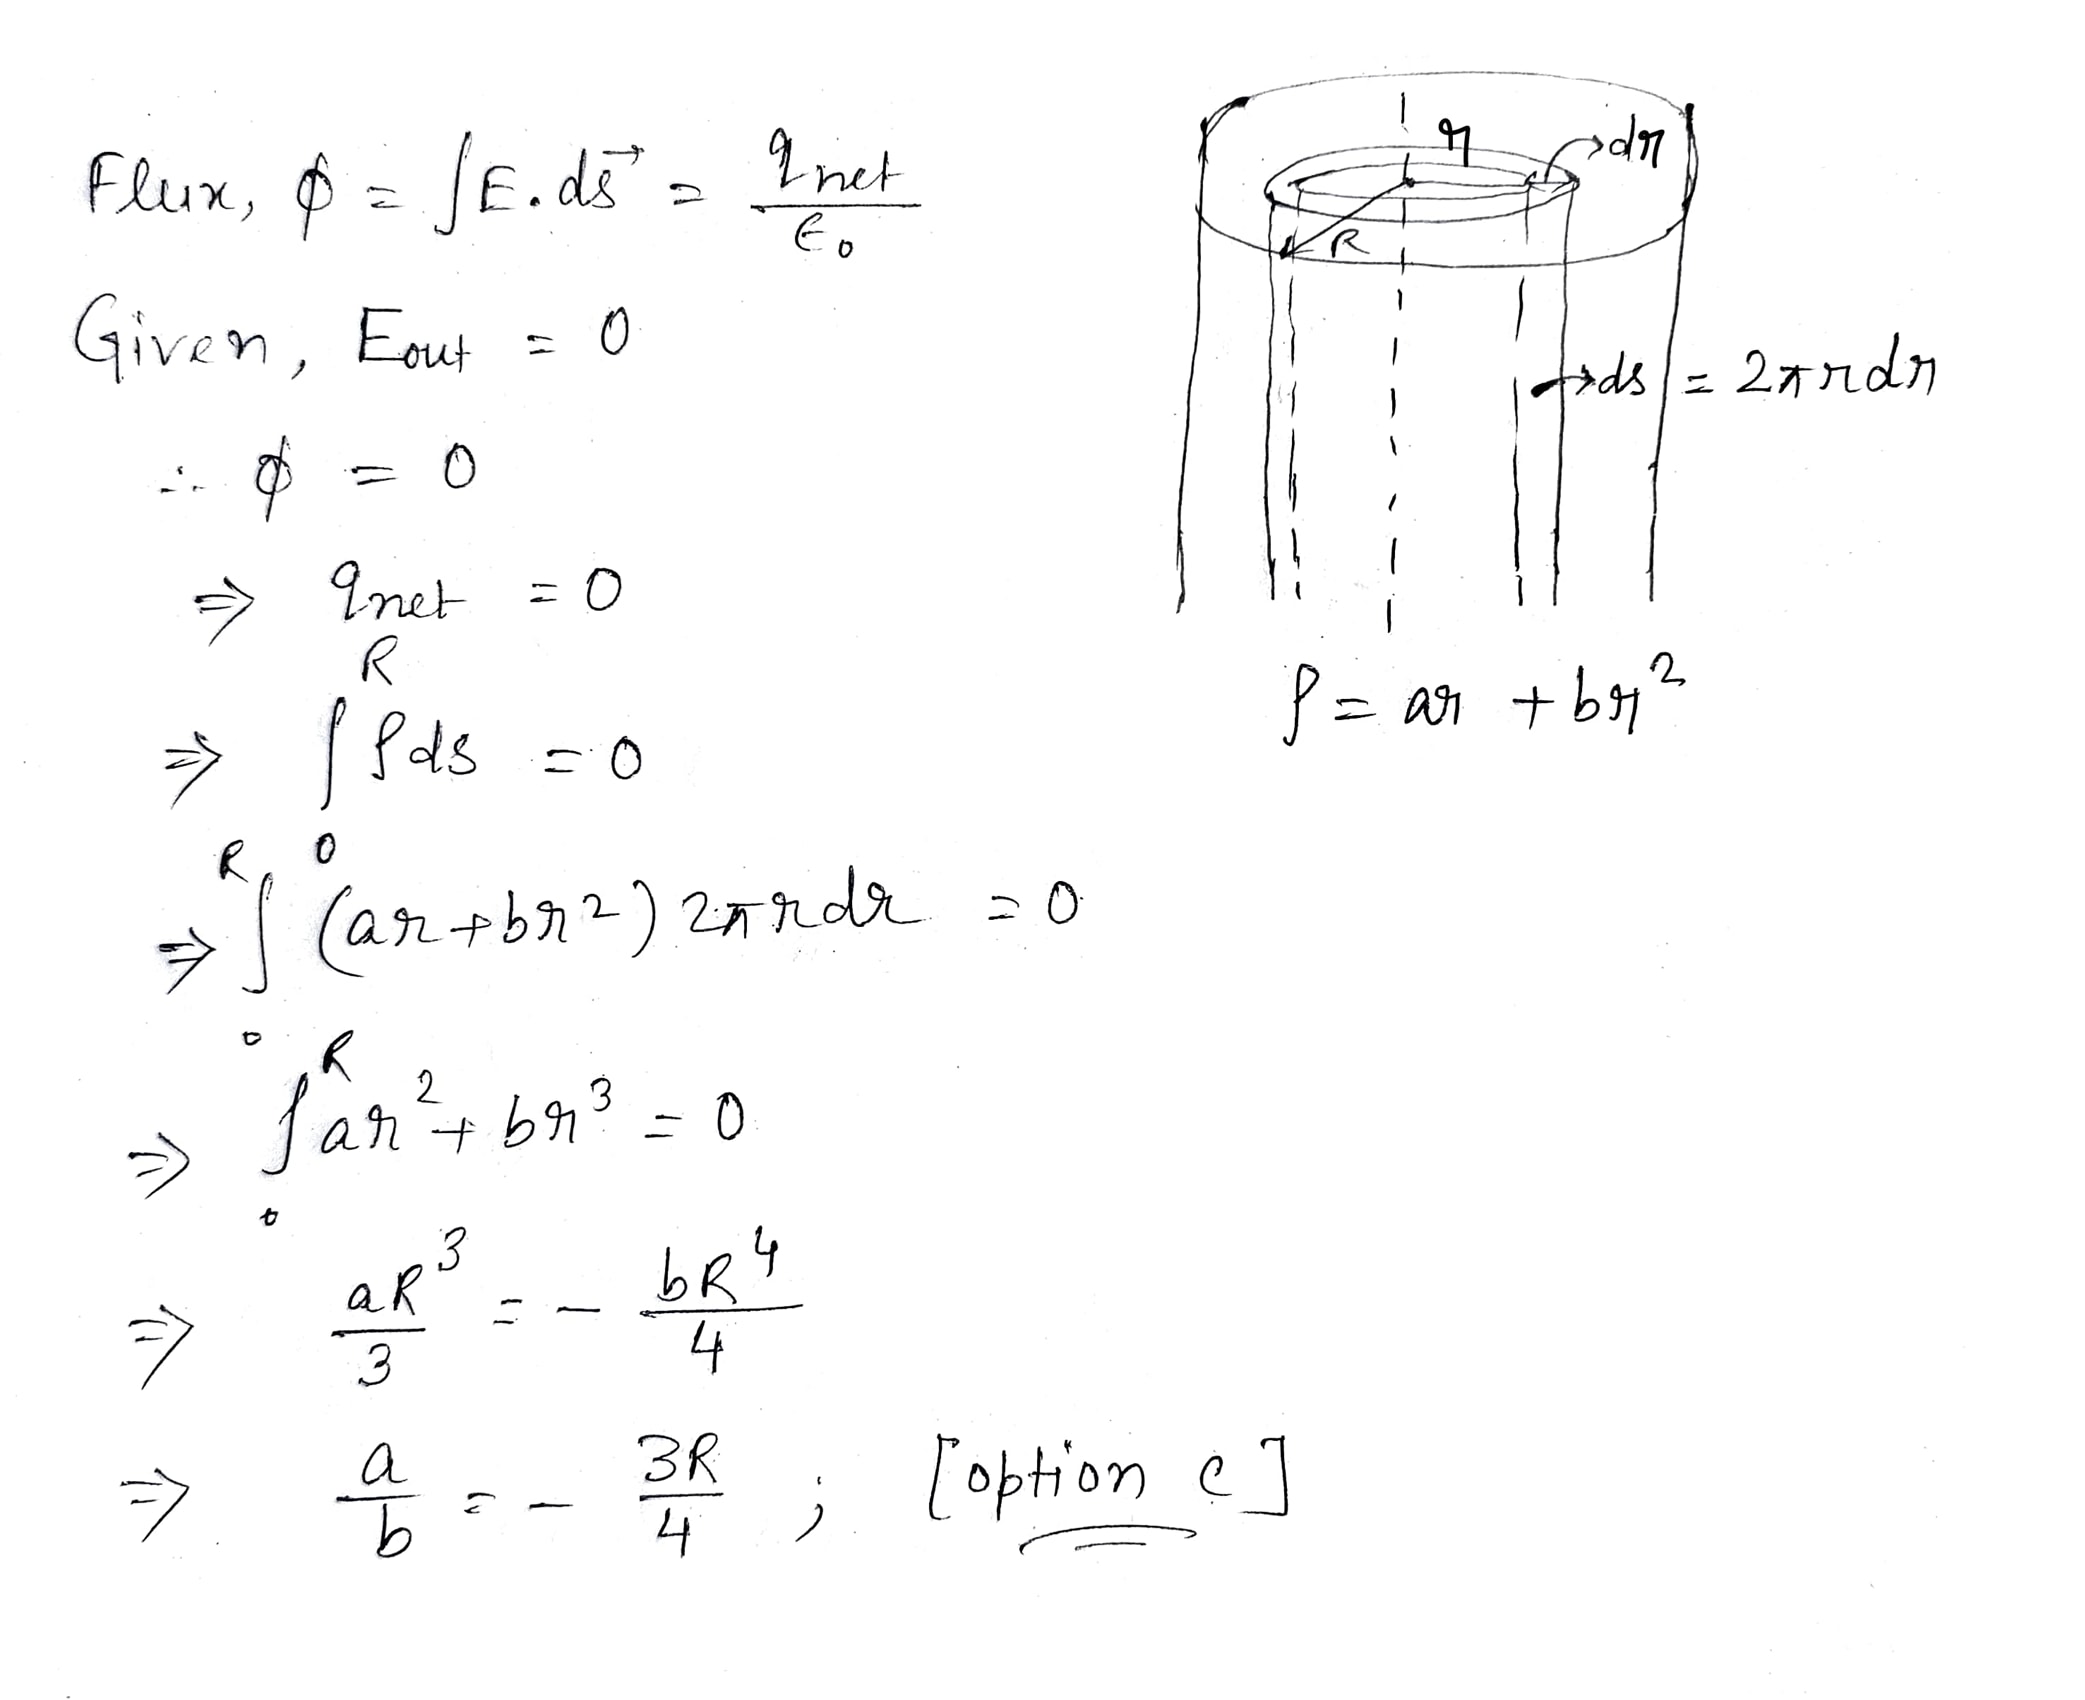 Flux, ϕ = ∫E.ds⃗ = qnet/ϵ₀
Given, Eout = 0
∴ ϕ = 0
⇒ qnet = 0
⇒ ∫₀ᴿ ρds = 0
⇒ ∫₀ᴿ (ar+br²) 2πrdr = 0
⇒ ∫₀ᴿ ar² + br³ = 0
⇒ aR³/3 = - bR⁴/4
⇒ a/b = - 3R/4 ; [option c]
r
dr
R
ds = 2πrdr
ρ = ar + br²